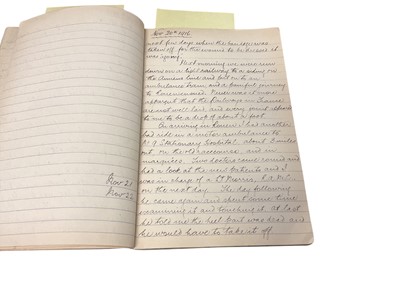 Nov 21
Nov 22
Nov 20th 1916
next few days when the bandage was
taken off for the wound to be dressed it
was agony.
Next morning we were sent
down on a light railway to a siding on
the Amiens line and put on to an
ambulance train and a painful journey
to Rouen ensued. Never was it more
apparent that the railways in France
are not well laid and every joint appeared
to me to be a drop of about a foot.
On arriving in Rouen I had another
bad ride in a motor ambulance to
No 9 Stationary Hospital about 3 miles
out, on the old racecourse, and in
marquees. Two doctors came round and
had a look at the new patients and I
was in charge of a Lt R.A.M.C.
on the next day. The day following
he came again and spent some time
examining it and touching it. At last
he told me the heel part was dead and
he would have to take it off.